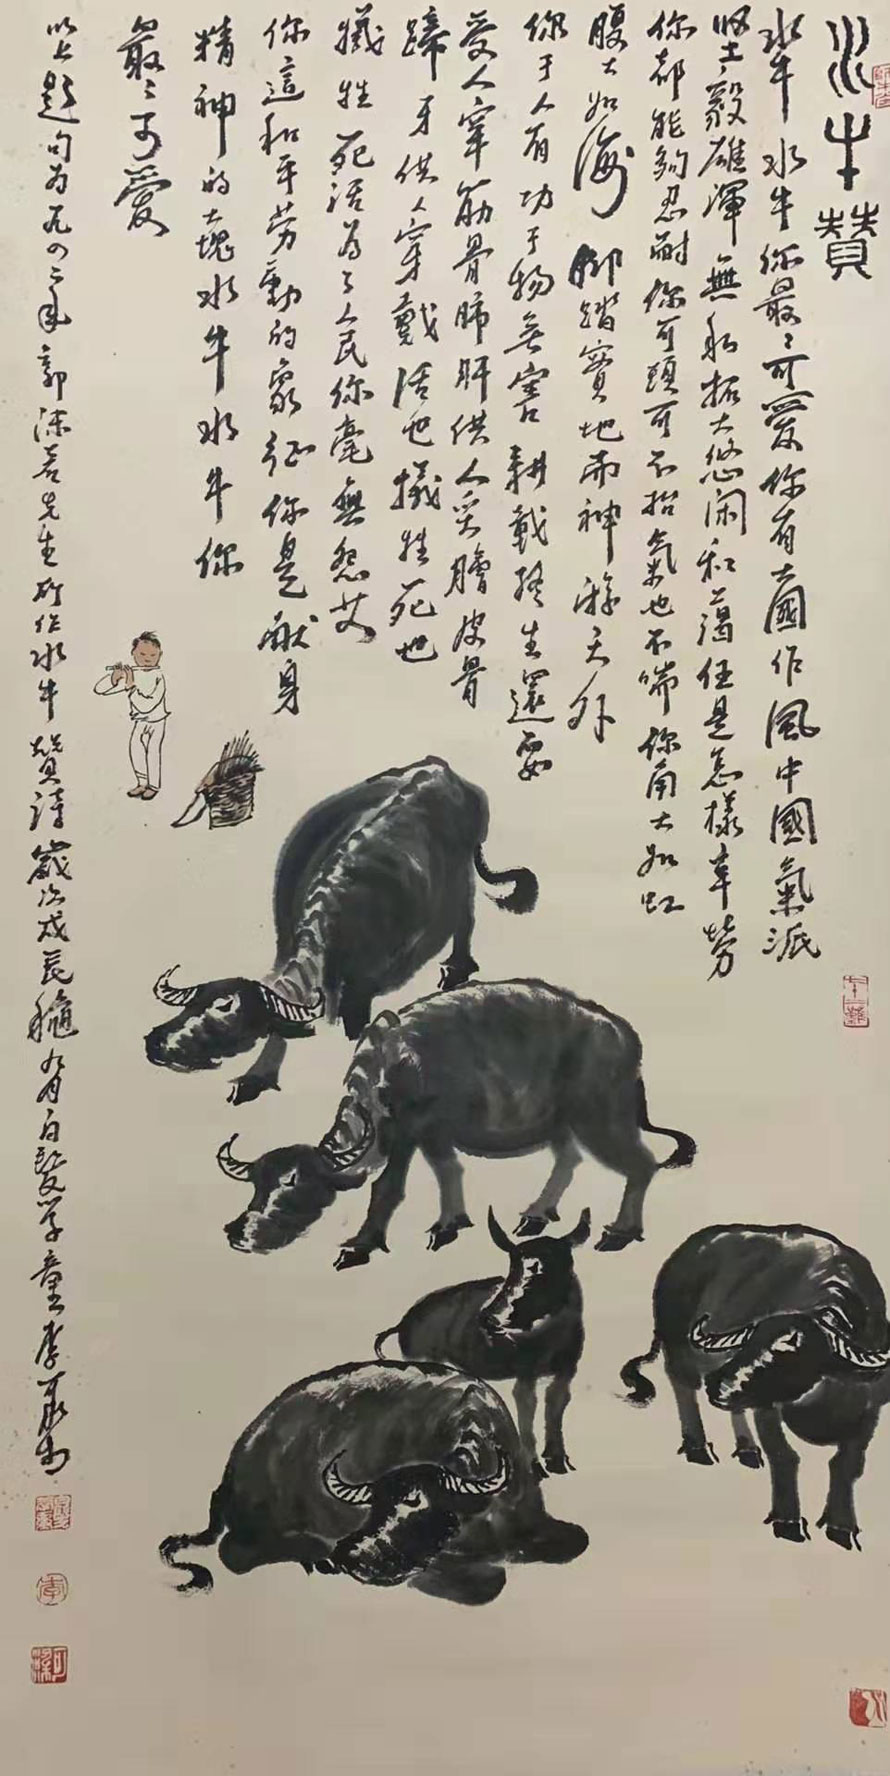 水牛赞
水牛水牛你最：可爱你有大国作风中國氣派
坚毅雄渾無私拓大悠闲和蔼任是怎様辛劳
你都能夠忍耐你可頭可不抬氣也不喘你角大如虹
腹大如海脚踏實地而神游天外
你于人有功于物无害耕載終生還要
受人宰筋骨肺肝供人炙膾皮骨
蹄牙供人穿戴活也犠牲死也
犠牲死活為了人民你毫無怨艾
你這和平劳動的象征你是献身
精神的大塊水牛水牛你
最：可爱
以上题句为一九四二年郭沫若先生所作水牛赞詩歲次戊辰龝九月白髮学童李可染